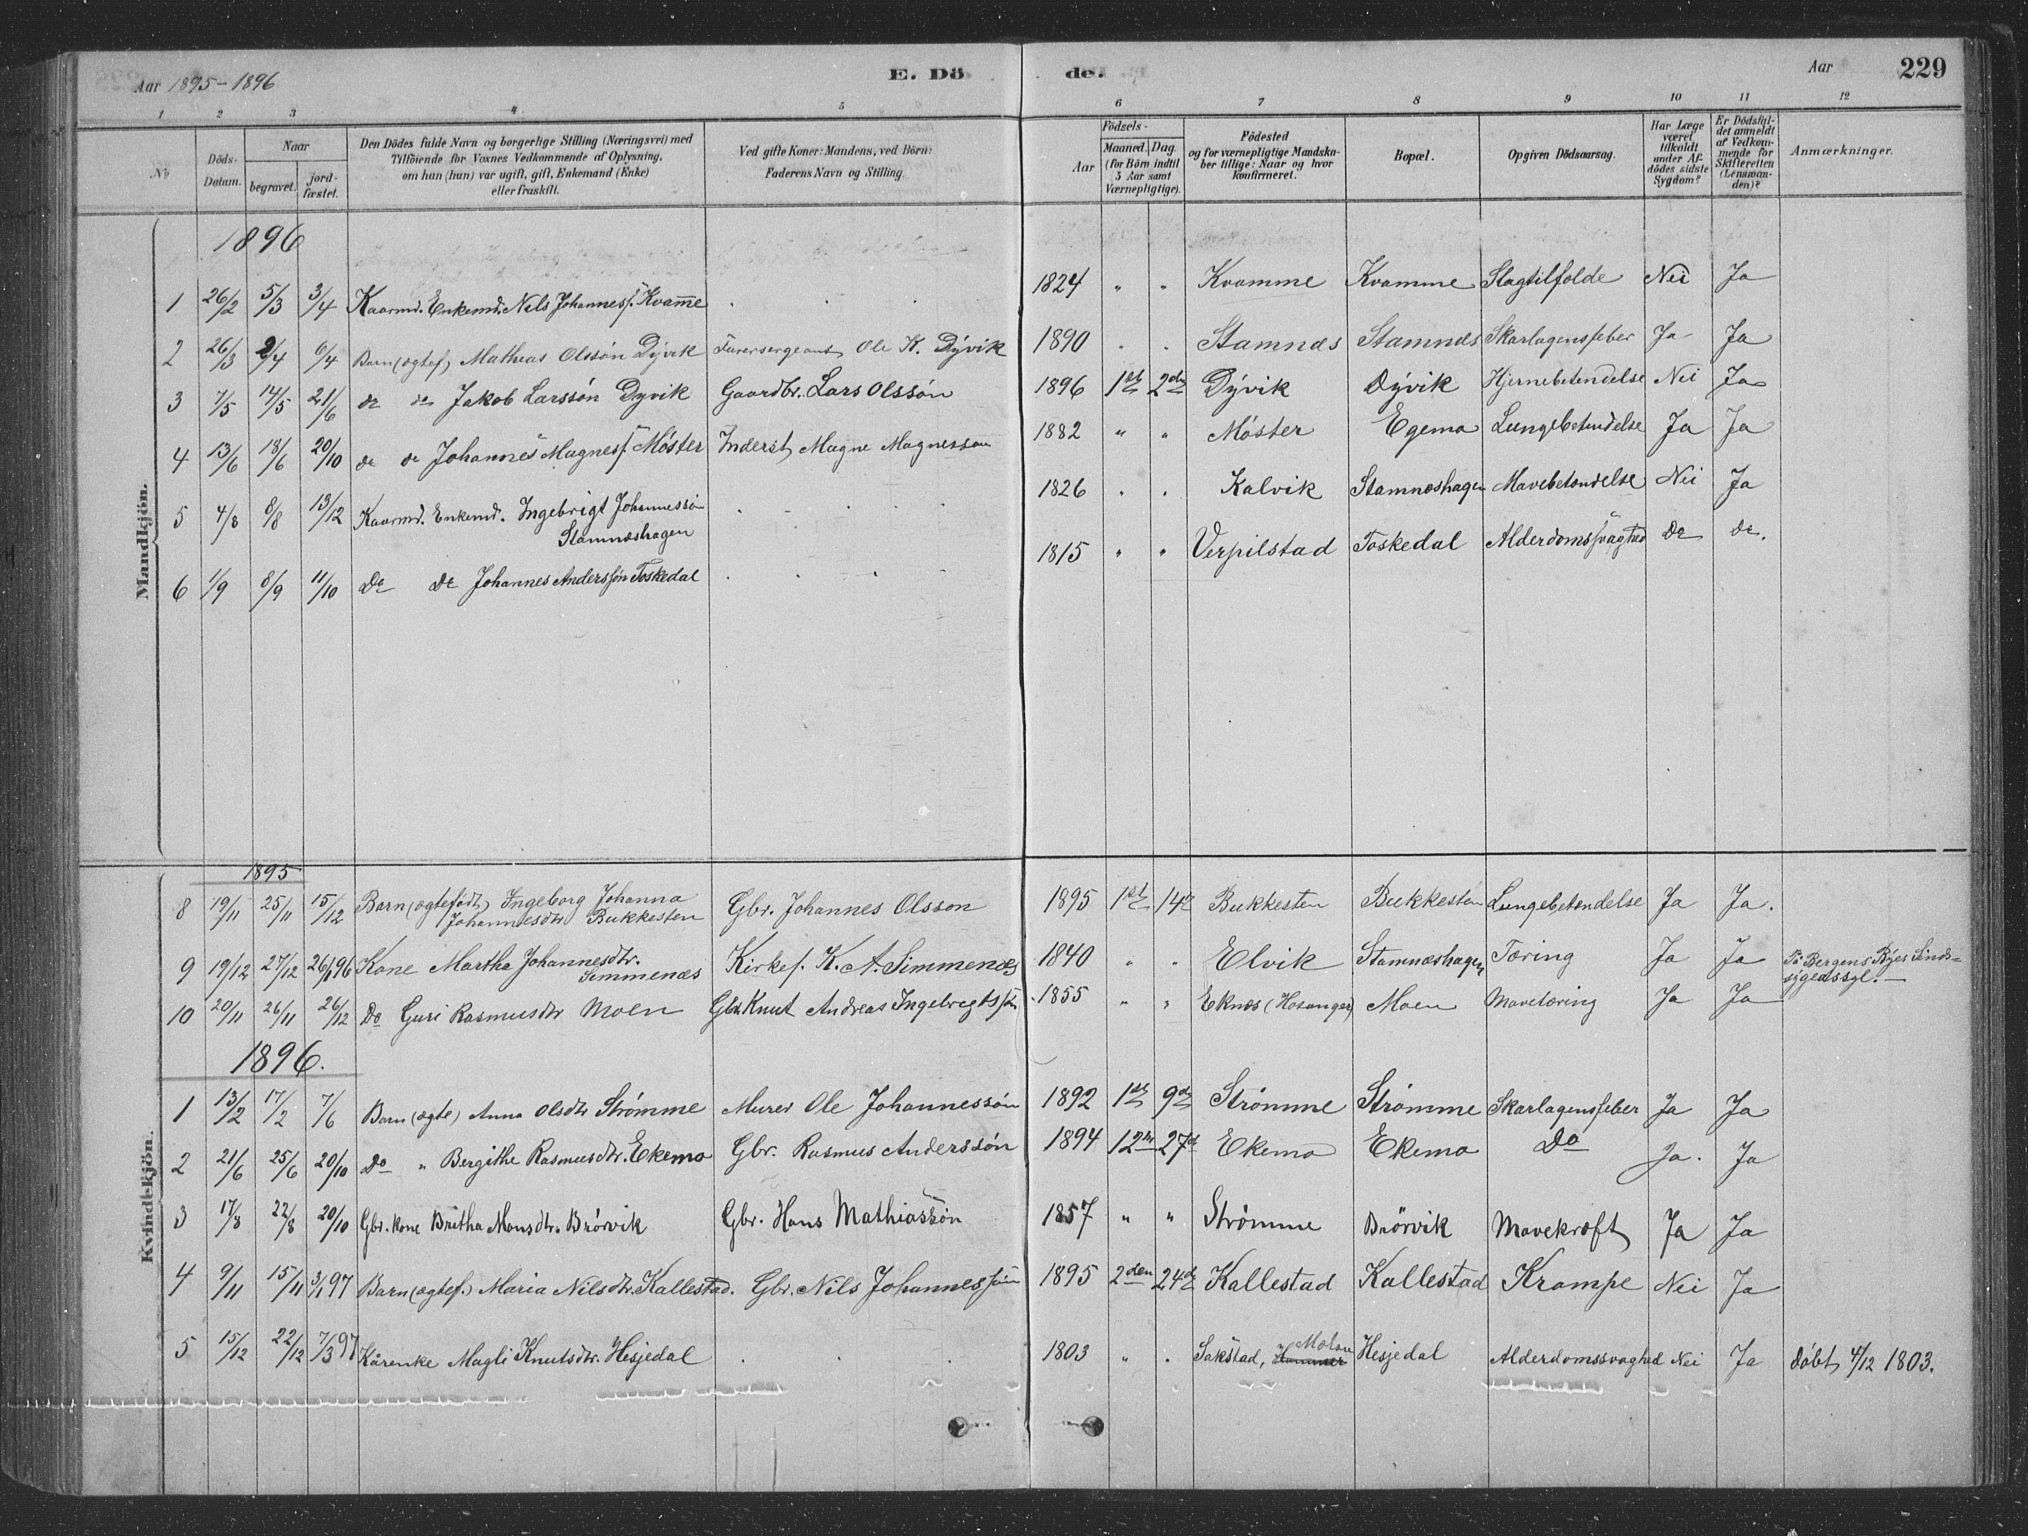 Aar 1895-1896 E. Dö de. Aar 229
1 2 3 4 5 6 7 8 9 10 11 12
No
Döds-Datum.
Naar
begravet.
jord-fæstet.
Den Dödes fulde Navn og borgerlige Stilling (Næringsvei) med
Tilföiende for Voxnes Vedkommende af Oplysning,
om han (hun) var ugift, gift, Enkemand (Enke)
eller fraskilt.
Ved gifte Koner: Mandens, ved Börn:
Faderens Navn og Stilling.
Födsels-
Aar
Maaned. Dag.
(for Börn indtil
5 Aar samt
Værnepligtige).
Födested
og for værnepligtige Mandskaber tillige: Naar og hvor
konfirmeret.
Bopæl.
Opgiven Dödsaarsag.
Har Læge
været
tilkaldt
under Afdödes sidste
Sygdom?
Er Dödsfaldet anmeldt
af Vedkommende for
Skifteretten
(Lensmanden)?
Anmærkninger.
Mandkjön.
1896
1 26/2 5/3 3/4 Kaarmd. Enkemd. Nils Johannesf. Kvamme . . . 1824 " " Kvamme Kvamme Slagtilfolde Nei Ja
2 26/3 2/4 6/4 Barn (ægtef.) Mathias Olssön Dÿvik Furersergeant Ole K. Dÿvik 1890 . . Stamnæs Stamnæs Skarlagensfeber Ja Ja
3 7/5 14/5 21/6 do do Jakob Larssön Dyvik Gaardbr. Lars Olssön 1896 1ste 2den Dÿvik Dÿvik Hjernebetendelse Nei Ja
4 13/6 18/6 20/10 do do Johannes Magnesf. Møster Inderst Magne Magnesson 1882 " " Møster Egemo Lungebetendelse Ja Ja
5 4/8 8/8 13/12 Kaarmd. Enkemd. Ingebrigt Johannessön
Stamnæshagen . . . 1826 . . Kalvik Stamnæshagen Mavebetændelse Nei Ja
6 1/9 8/9 11/10 Do Do Johannes Anderssön Toskedal . . . 1815 " " Verpilstad Toskedal Alderdomssvaghed Do do.
Kvindekjön.
1895
8 19/11 25/11 15/12 Barn (ægtefödt) Ingeborg Johanna
Johannesdtr Bukkesten Gbr. Johannes Olsson 1895 1ste 14de Bukkesten Bukkesten Lungebetendelse Ja Ja.
9 19/12 27/12 26/1 96 Kone Martha Johannesdtr.
Simmenæs Kirkef. K. A. Simmenæs 1840 " . Elvik Stamnæshagen Tæring Ja Ja På Bergens Byes Sinds-
sygeassyl. -
10 20/11 26/11 26/12 Do Guri Rasmusdtr Moen Gbr. Knut Andreas Ingebrigtssön 1855 " " Eknæs (Hosanger) Moen Mavetæring Ja Ja
1896.
1 13/2 17/2 7/6 Barn (ægte) Anna Olsdtr Strømme Murer Ole Johannessön 1892 1ste 9de Strømme Strømme Skarlagensfeber Ja Ja
2 21/6 25/6 20/10 Do " Bergithe Rasmusdtr. Ekemo Gbr. Rasmus Anderssön 1894 12te 27de Ekemo Ekemo Do Ja. Ja
3 17/8 22/8 20/10 Gbr. kone Britha Monsdtr. Brörvik Gbr. Hans Mathiassön 1857 " " Strømme Brörvik Mavekræft Ja Ja
4 9/11 15/11 3/1 97 Barn (ægtef.) Maria Nilsdtr. Kallestad. Gbr. Nils Johannessön 1895 2den 24de Kallestad Kallestad Krampe Nei Ja
5 15/12 22/12 7/3 97 Kårenke Magli Knutsdtr. Hesjedal . . . 1803 " . Sakstad, Hammer Hesjedal Alderdomssvaghed Nei Ja døbt 4/12 1803.